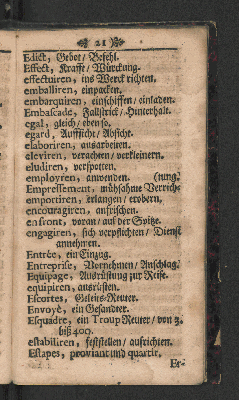 21
Edict, Gebot/ Befehl.
Effect, Krafft/ Würckung.
effectuiren, ins Werck richten.
emballiren, einpacken.
embarquiren, einschiffen/ einladen.
Embascade, Fallstrick/ Hinterhalt.
egal, gleich/ eben so.
egard, Auffsicht/ Absicht.
elaboriren, ausarbeiten.
eleviren, verachten/ verkleinern.
eludiren, verspotten.
employren, anwenden. (tung.
Empressement, mühsahme Verrich-
emportiren, erlangen/ erobern.
encouragiren, anfrischen.
en front, voran/ auf der Spitze.
engagiren, sich verpflichten/ Dienst
annehmen.
Entrée, ein Einzug.
Entreprise, Vornehmen/ Anschlag.
Equipage, Ausrüstung zur Reise.
equipiren, ausrüsten.
Escortes, Geleits-Reuter.
Envoyè, ein Gesandter.
Esquadre, ein Troup Reuter/ von 3.
biß 400.
estabiliren, feststellen/ aufrichten.
Estapes, proviant und quartir.
Et-